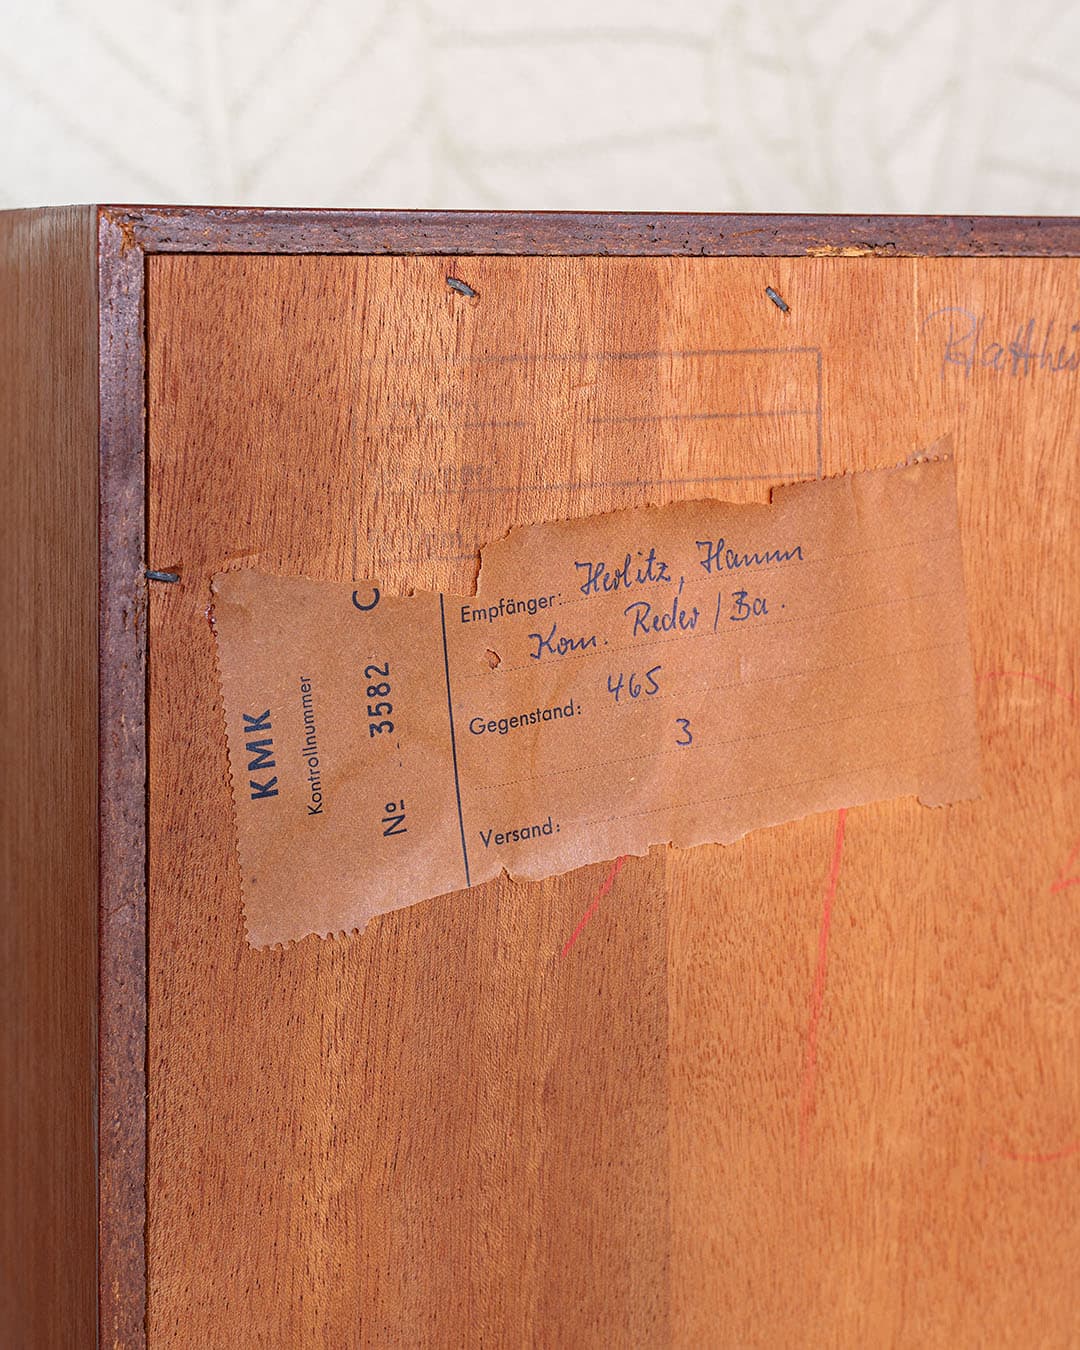 KMK
Kontrollnummer
Nº 3582 C
Empfänger: Herlitz, Hamm
Kom. Reder / Ba.
Gegenstand: 465
3
Versand: